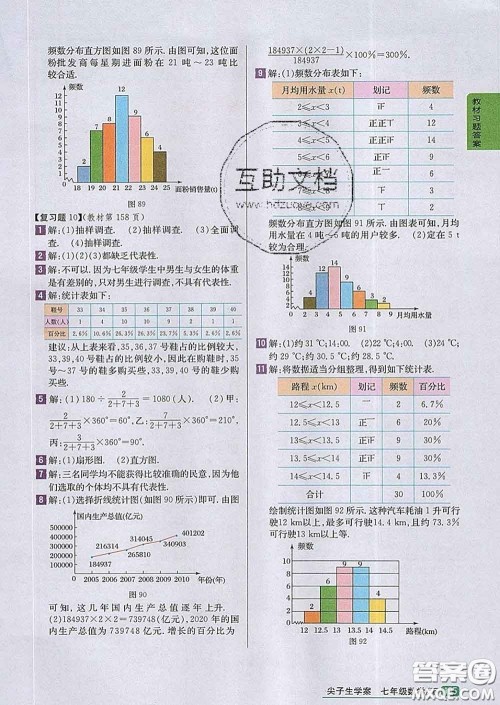 频数分布直方图如图 89 所示. 由图可知, 这位面
粉批发商每星期进面粉在 21 吨～23 吨比
较合适.
频数
12
11
10
9
8
7
6
5
4
3
2
1
2 7 9 12 8 6 4 4
18 19 20 21 22 23 24 25
面粉销售量(t)
图 89
【复习题 10】(教材第 158 页)
1 解:(1)抽样调查. (2)抽样调查. (3)全面调
查. (4)抽样调查.
2 解:(1)(2)(3)都缺乏代表性.
3 解:不可以. 因为七年级学生中男生与女生的体重
是有差别的, 只对男生进行调查, 不具有代表性.
4 解:统计表如下:
鞋号 33 34 35 36 37 38 39 40
人数(人) 1
建议:从上表来看,35,36,37 号鞋占的比例较大,
33,39,40 号鞋占的比例较小, 因此在购鞋时,35
号～37 号的鞋多购买些,33,39,40 号鞋少购买
些.
5 解:(1)180÷2/(2+7+3)=1080(人). (2)甲:
2/(2+7+3)×360°=60°, 乙:7/(2+7+3)×360°=210°,
丙:3/(2+7+3)×360°=90°.
6 解:(1)扇形图. (2)直方图.
7 解:三名同学均不能获得比较准确的民意, 因为他
们选的个体均不具有代表性.
8 解:(1)选择折线统计图(如图 90 所示)即可. 由图
国内生产总值(亿元)
500000
400000
300000
200000
100000
0
216314 265810 314045 340903 401202
2005 2006 2007 2008 2009 2010 年份(年)
图 90
可知, 这几年国内生产总值逐年上升.
(2)184937×2×2=739748(亿元), 2020 年的国
内生产总值为 739748 亿元. 增长的百分比为
184937×(2×2-1)/184937×100%=300%.
9 解:(1)频数分布表如下:
月均用水量 x(t) 划记 频数
2≤x<3 正 4
3≤x<4 正正丅 12
4≤x<5 14
9
6
4
8≤x<9 2
频数分布直方图如图 91 所示. 由图表可知, 月均
用水量在 4 吨～5 吨的用户较多. (2)定在 5 t
较为合理.
频数
14
12
10
8
6
4
2
0
2 3 4 5 6 7 8 9 月均用水量
图 91
10 解:(1)约 31 ℃;14:00. (2)22 ℃;4:00. (3)24 ℃;
约 29 ℃;约 30.5 ℃;约 28.5 ℃;约 27 ℃.
11 解:将数据适当分组整理, 得到如下统计表.
路程 x(km) 划记 频数 百分比
12≤x<12.5 2 6.7%
12.5≤x<13 6 20%
13≤x<13.5 9 30%
13.5≤x<14 9 30%
14≤x<14.5 4 13.3%
合计 30 100%
绘制统计图如图 92 所示. 这种汽车耗油 1 升可行
驶12 km以上,最多可行驶14.4 km,且约 73.3%
可行驶13 km以上等.
频数
10
8
6
4
2
2 6 9 9 4
12 12.5 13 13.5 14 14.5 路程(km)
图 92
教材习题答案
互助文档
尖子生学案 七年级数学
答案圈